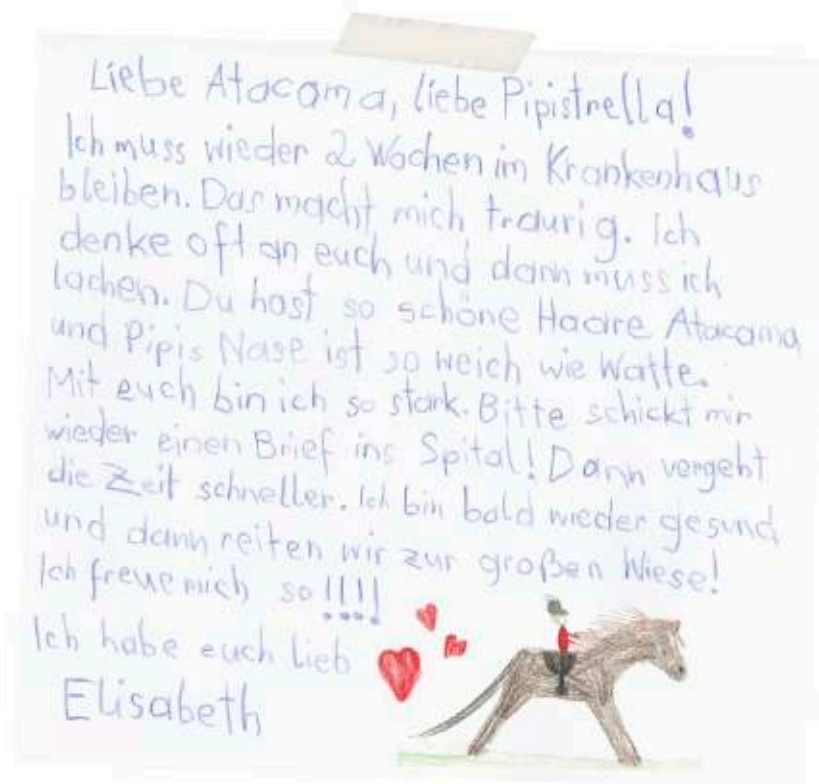 Liebe Atacama, liebe Pipistrella!
Ich muss wieder 2 Wochen im Krankenhaus
bleiben. Das macht mich traurig. Ich
denke oft an euch und dann muss ich
lachen. Du hast so schöne Haare Atacama
und Pipis Nase ist so weich wie Watte.
Mit euch bin ich so stark. Bitte schickt mir
wieder einen Brief ins Spital! Dann vergeht
die Zeit schneller. Ich bin bald wieder gesund
und dann reiten wir zur großen Wiese!
Ich freue mich so!!!!
Ich habe euch Lieb
Elisabeth